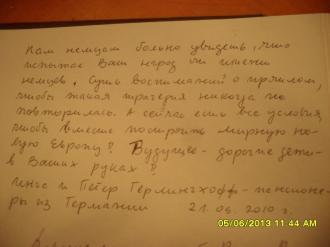 Нам немцам больно увидеть, что
испытал Ваш народ от имени
немцев. Суть воспоминаний о прошлом,
чтобы такая трагедия никогда не
повторилась. А сейчас есть все условия,
чтобы вместе построить мирную но-
вую Европу? Будущее - дорогие дети -
в Ваших руках?
и Петер Герлингхофф - пенсионе-
ры из Германии 21.09.2010 г.
05/06/2013 11:44 AM